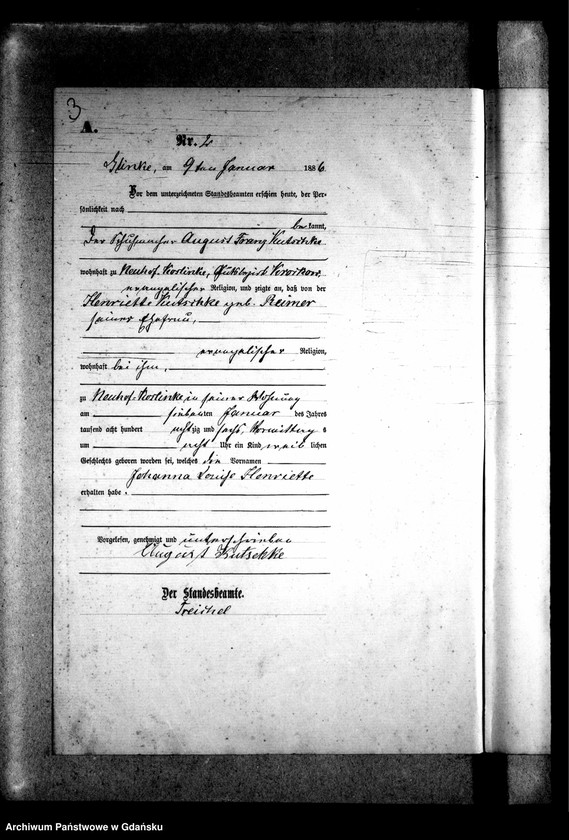 3
A.
Nr. 2
Glinke, am 9ten Januar 1886.
Vor dem unterzeichneten Standesbeamten erschien heute, der Per-
sönlichkeit nach
be kannt,
Der Schuhmacher August Franz Kutschke
wohnhaft zu Neuhof-Korlinke,
evangelischer Religion, und zeigte an, daß von der
Henriette Kutschke geb. Reimer
seiner Ehefrau,
evangelischer Religion,
wohnhaft bei ihm,
zu Neuhof-Korlinke in seiner Wohnung
am siebenten Januar des Jahres
tausend acht hundert achtzig und sechs, Vormittag s
um acht Uhr ein Kind weib lichen
Geschlechts geboren worden sei, welches die Vornamen
Johanna Louise Henriette
erhalten habe.
Vorgelesen, genehmigt und unterschrieben
August Kutschke
Der Standesbeamte.
Treichel
Archiwum Państwowe w Gdańsku